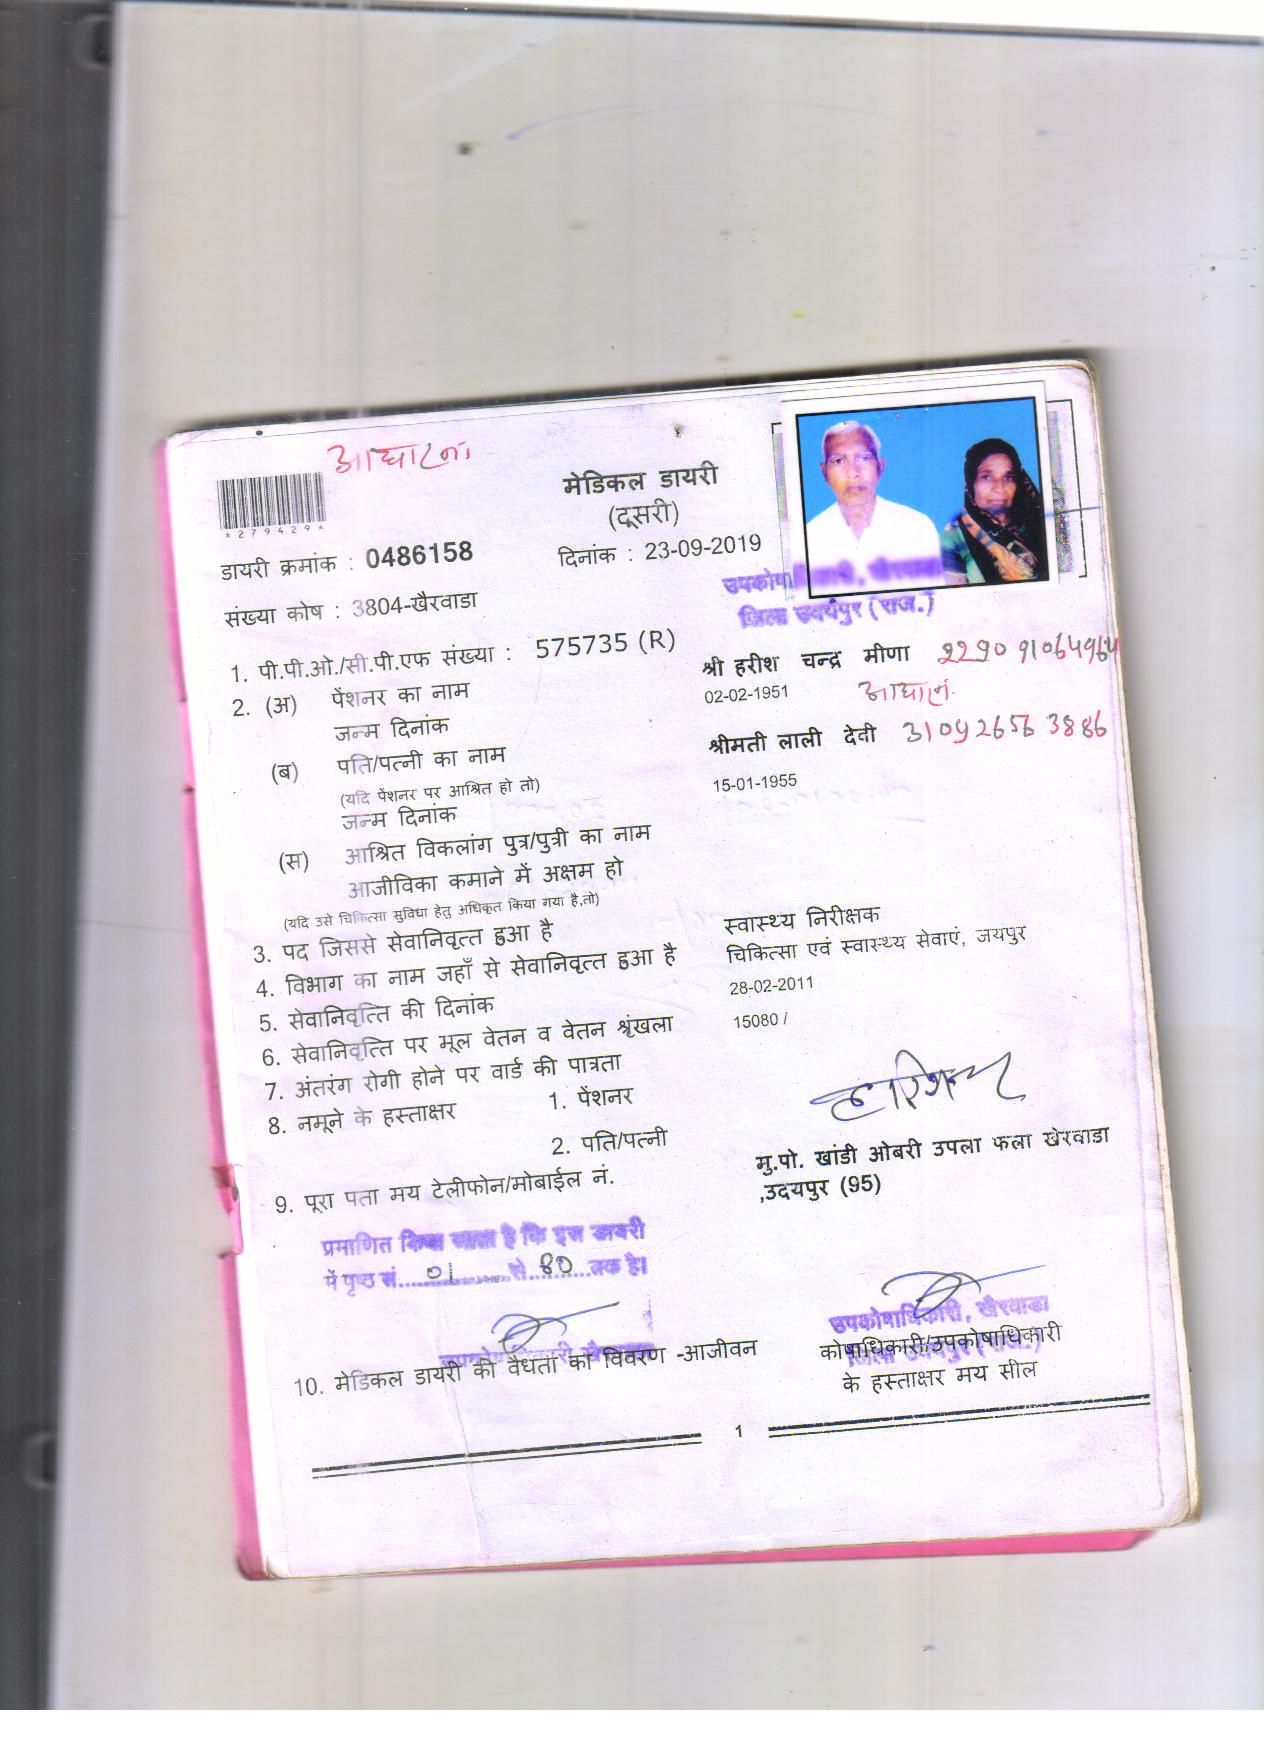 आधार नं.
*279429*
मेडिकल डायरी
(दूसरी)
डायरी क्रमांक : 0486158
दिनांक : 23-09-2019
संख्या कोष : 3804-खैरवाडा
उपकोषाधिकारी, खैरवाडा
जिला उदयपुर (राज.)
1. पी.पी.ओ./सी.पी.एफ संख्या : 575735 (R)
2. (अ) पेंशनर का नाम श्री हरीश चन्द्र मीणा
जन्म दिनांक 02-02-1951
आधार नं.
(ब) पति/पत्नी का नाम श्रीमती लाली देवी
(यदि पेंशनर पर आश्रित हो तो)
जन्म दिनांक 15-01-1955
(स) आश्रित विकलांग पुत्र/पुत्री का नाम
आजीविका कमाने में अक्षम हो
(यदि उसे चिकित्सा सुविधा हेतु अधिकृत किया गया है,तो)
3. पद जिससे सेवानिवृत्त हुआ है स्वास्थ्य निरीक्षक
4. विभाग का नाम जहाँ से सेवानिवृत्त हुआ है चिकित्सा एवं स्वास्थ्य सेवाएं, जयपुर
5. सेवानिवृत्ति की दिनांक 28-02-2011
6. सेवानिवृत्ति पर मूल वेतन व वेतन श्रृंखला 15080 /
7. अंतरंग रोगी होने पर वार्ड की पात्रता
8. नमूने के हस्ताक्षर 1. पेंशनर
2. पति/पत्नी
9. पूरा पता मय टेलीफोन/मोबाईल नं. मु.पो. खांडी ओबरी उपला फला खेरवाडा
,उदयपुर (95)
प्रमाणित किया जाता है कि इस डायरी
में पृष्ठ सं....01....से....80....तक है।
उपकोषाधिकारी, खैरवाडा
जिला उदयपुर (राज.)
कोषाधिकारी/उपकोषाधिकारी
के हस्ताक्षर मय सील
10. मेडिकल डायरी की वैधता का विवरण -आजीवन
1